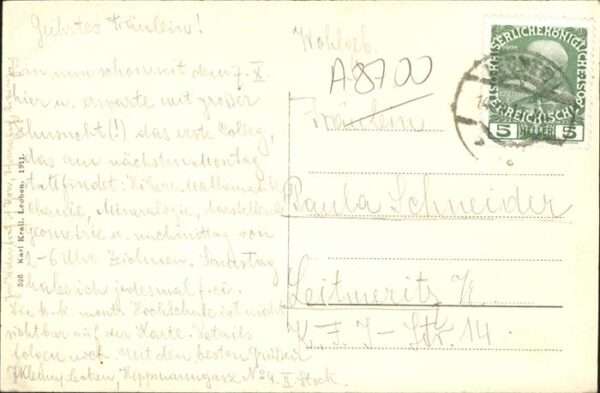 Geehrtes Fräulein!
Bin nun schon seit dem 7. X.
hier u. erwarte mit großer
Sehnsucht(!) das erste Colleg,
das am nächsten Montag
stattfindet: Höhere Mathematik,
Mineralogie, darstellende
Geometrie u. nachmittag von
2-6 Uhr Zeichnen. Samstag
habe ich jedesmal frei.
Die k.k. mont. Hochschule ist nicht
sichtbar auf der Karte. Details
folgen noch. Mit den besten Grüßen
Leoben, N° 24. II. Stock.
526 Karl Krall, Leoben. 1911.
Wohlgeb.
A8700
Fräulein
Paula Schneider
Leitmeritz
K. F. J - Str. 14.
KAISERLICHE KÖNIGLICHE
ÖSTERREICHISCHE
5 HELLER 5